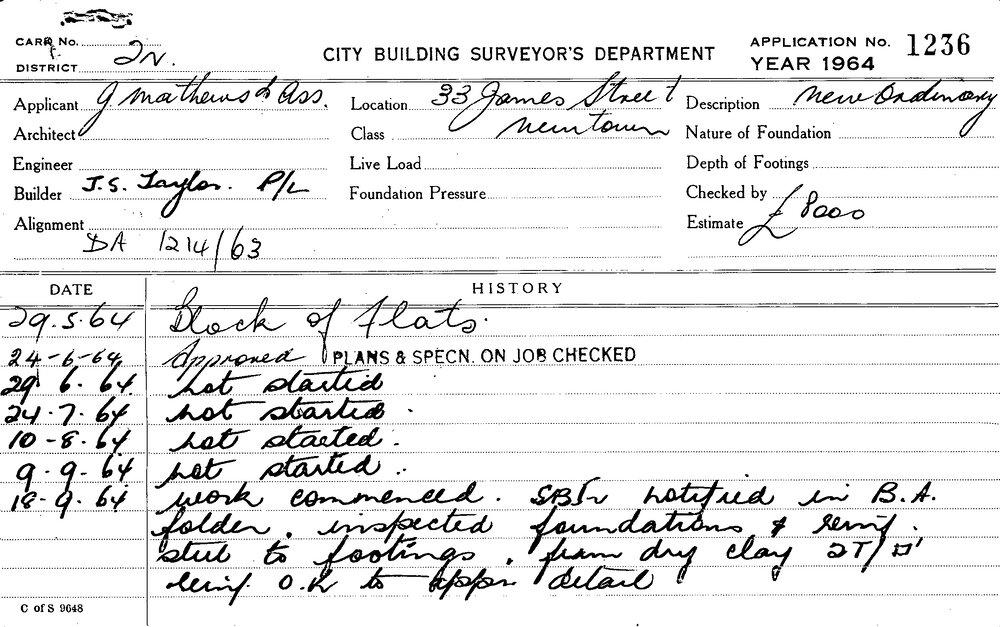 CARD No.
DISTRICT 2N.
CITY BUILDING SURVEYOR'S DEPARTMENT
APPLICATION No. 1236
YEAR 1964
Applicant J Mathews & Ass. Location 33 James Street Description New Ordinary
Architect Class Newtown Nature of Foundation
Engineer Live Load Depth of Footings
Builder J.S. Taylor. P/L Foundation Pressure Checked by
Alignment Estimate £8000
DA 1214/63
DATE HISTORY
29.5.64 Block of flats.
24-6-64 Approved PLANS & SPECN. ON JOB CHECKED
29 6. 64. not started
24.7.64 not started.
10-8.64 not started.
9-9.64 not started.
18-9.64 work commenced. notified in B.A.
folder, inspected foundations & reinf.
steel to footings, firm dry clay 2T/□'
reinf. O.K to appr detail
C of S 9648